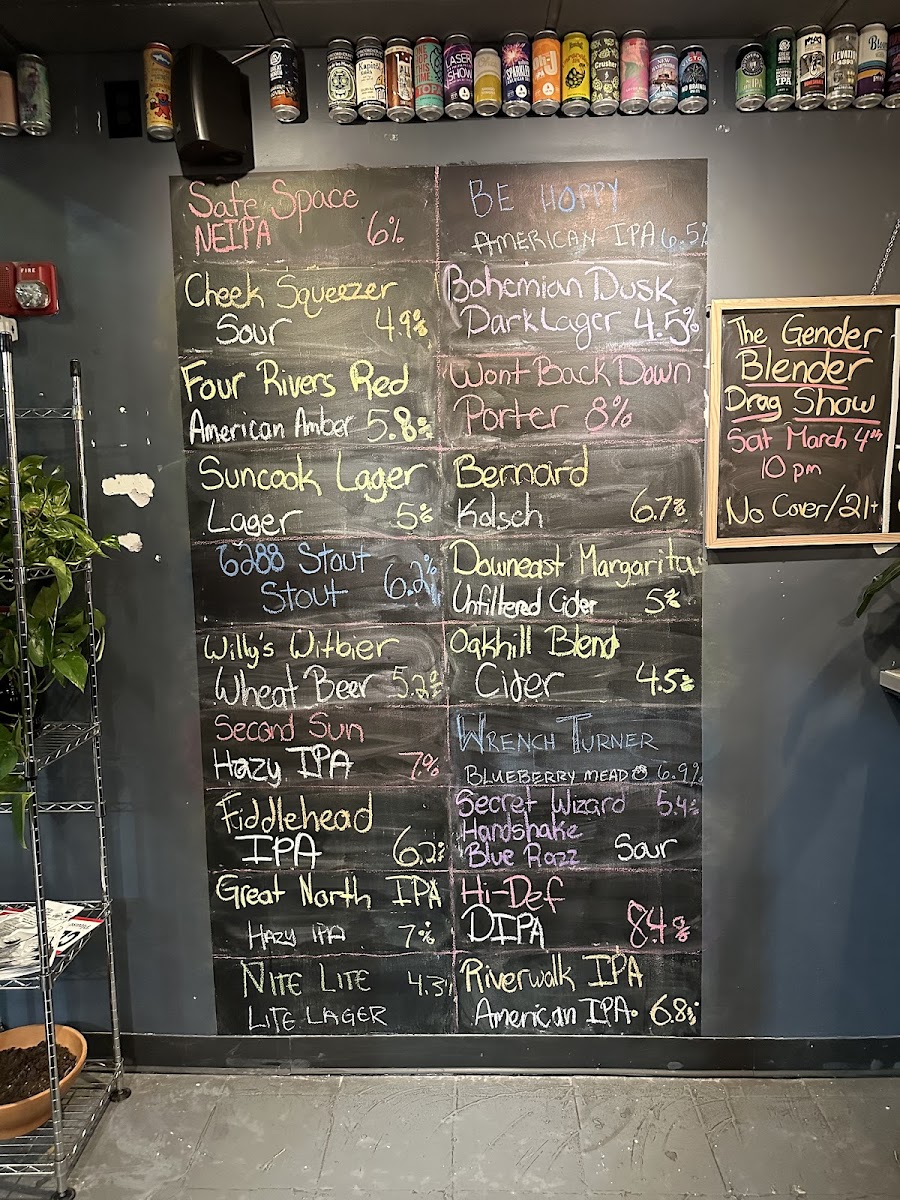 LASER
SHOW
Crusher
IPA
Safe Space
NEIPA 6%
Cheek Squeezer
Sour 4.9%
Four Rivers Red
American Amber 5.8%
Suncook Lager
Lager 5%
6288 Stout
Stout 6.2%
Willy's Witbier
Wheat Beer 5.2%
Second Sun
Hazy IPA 7%
Fiddlehead
IPA 6.2%
Great North IPA
HAZY IPA 7%
NITE LITE 4.3%
LITE LAGER
BE HOPPY
AMERICAN IPA 6.5%
Bohemian Dusk
Dark Lager 4.5%
Wont Back Down
Porter 8%
Bernard
Kolsch 6.7%
Downeast Margarita
Unfiltered Cider 5%
Oakhill Blend
Cider 4.5%
WRENCH TURNER
BLUEBERRY MEAD 6.9%
Secret Wizard 5.4%
Handshake
Blue Razz Sour
Hi-Def
DIPA 8.4%
Riverwalk IPA
American IPA. 6.8%
The Gender
Blender
Drag Show
Sat March 4th
10 pm
No Cover/21+
FIRE